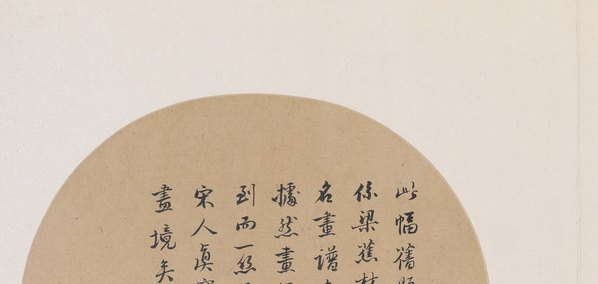 此幅舊題
係梁蕉林
名畫譜
據然畫
到而一絲
宋人真
畫境矣